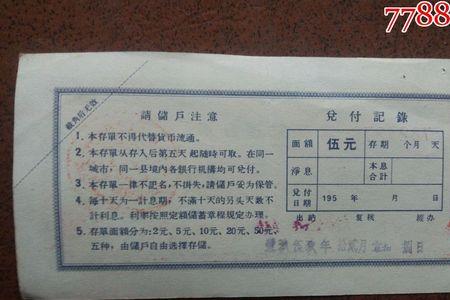 7788
截角后无效
請儲戶注意
1、本存單不得代替貨币流通。
2、本存單从存入后第五天起随時可取。在同一
城市，同一县境内各銀行機構均可兌付。
3、本存單一律不記名，不掛失，請儲戶妥为保管。
4、每十天为一計息期，不滿十天的另头天数不
計利息。利率按照定額儲蓄章程規定办理。
5、存單面額分为：2元、5元、10元、20元、50元、
五种，由儲戶自由选擇存儲。
兌付記錄
面額 伍元 存期 个月 天
淨息 本息合計
兌付日期 195 年 月 日
出納 复核 經办
年 拾貳月 日